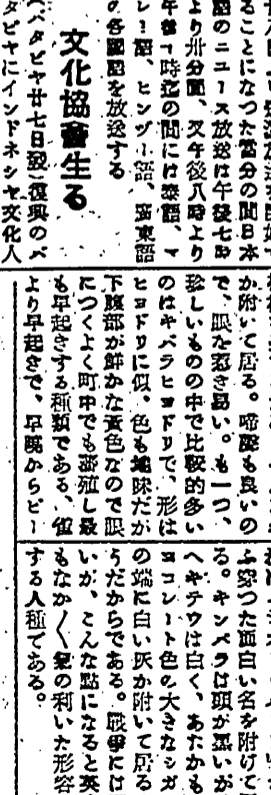 ることになつた當分の間日本
語のニュース放送は午後七時
より卅分間、又午後八時より
午後十時迄の間には泰語、マ
レー語、ヒンヅー語、廣東語
の各國語を放送する
文化協會生る
(バタビヤ廿七日發)復興のバ
タビヤにインドネシヤ文化人
か附いて居る。啼聲も良いの
で、眼を惹き易い。も一つ、
珍しいものの中で比較的多い
のはキバラヒヨドリで、形は
ヒヨドリに似、色も地味だが
下腹部が鮮かな黄色なので眼
につくよく町中でも蕃殖し最
も早起きする種類である、雀
より早起きで、早晩からピー
ふ穿つた面白い名を附けて
る。キンパラは頭が黒いが
ヘキテウは白く、あたかも
ヨコレート色の大きなシガ
の端に白い灰か附いて居る
うだからである。戰爭には
いが、こんな點になると英
もなか〱氣の利いた形容
する人種である。